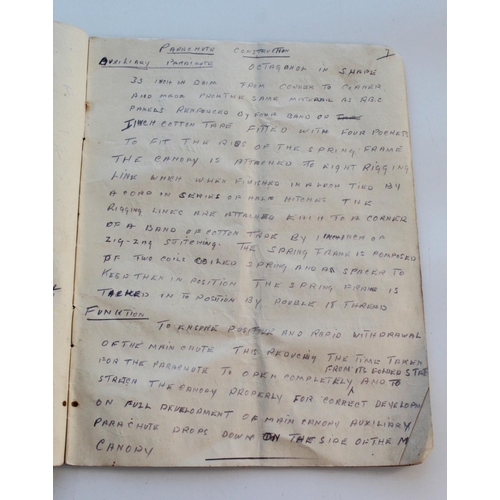 PARACHUTE CONSTRUCTION 1
AUXILIARY PARACHUTE OCTAGANOL IN SHAPE
33 INCH IN DAIM FROM CORNER TO CORNER
AND MADE FROM THE SAME MATERIAL AS ABC
PANELS REINFORCED BY FOUR BAND OF
1 INCH COTTON TAPE FITTED WITH FOUR POCKETS
TO FIT THE RIBS OF THE SPRING FRAME
THE CANOPY IS ATTACHED TO EIGHT RIGGING
LINE WHICH WHEN FINISHED IN A LOOP TIED BY
A CORD IN SERIES OF HALF HITCHES THE
RIGGING LINES ARE ATTACHED EACH TO A CORNER
OF A BAND OF COTTON TAPE BY 1 INCH OF
ZIG-ZAG STITCHING. THE SPRING FRAME IS COMPOSED
OF TWO COILS COILED SPRING AND A SPACER TO
KEEP THEM IN POSITION THE SPRING FRAME IS
TACKED IN TO POSITION BY DOUBLE 18 THREAD
FUNCTION
TO ENSURE POSITIVE AND RAPID WITHDRAWAL
OF THE MAIN CHUTE THIS REDUCING THE TIME TAKEN
FOR THE PARACHUTE TO OPEN COMPLETELY FROM ITS FOLDED STATE AND TO
STRETCH THE CANOPY PROPERLY FOR CORRECT DEVELOPM
ON FULL DEVELOPMENT OF MAIN CANOPY AUXILIARY
PARACHUTE DROPS DOWN ON THE SIDE OF THE M
CANOPY